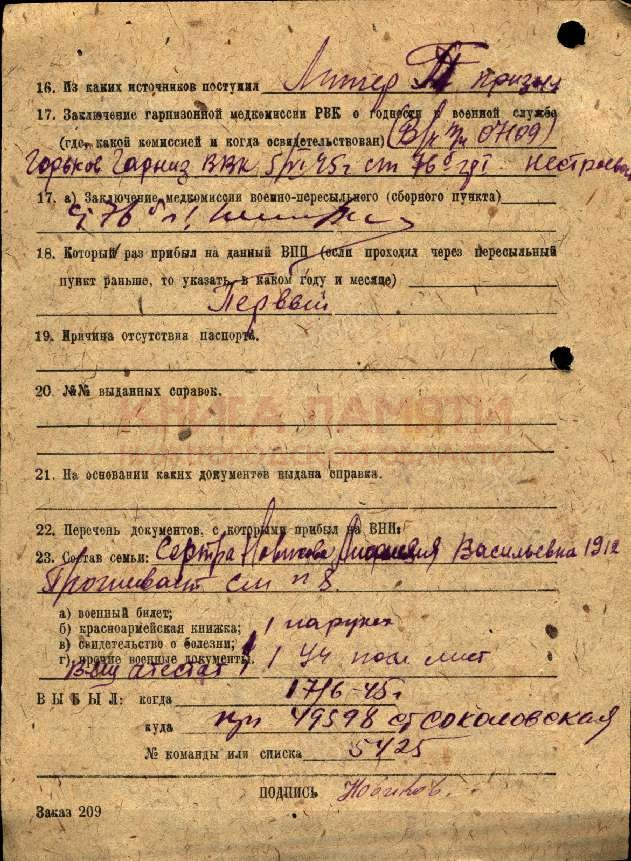 16. Из каких источников поступил Литер призыв
17. Заключение гарнизонной медкомиссии РВК о годности к военной службе
(где, какой комиссией и когда освидетельствован) 07109)
Горьков Гарниз ВВК 45г ст 76 нестроевой
17. а) Заключение медкомиссии военно-пересыльного (сборного пункта)
ст 76
18. Который раз прибыл на данный ВПП (если проходил через пересыльный
пункт раньше, то указать, в каком году и месяце)
Первый
19. Причина отсутствия паспорта.
20. №№ выданных справок.
КНИГА ПАМЯТИ
НИЖЕГОРОДСКОЙ ОБЛАСТИ
21. На основании каких документов выдана справка.
22. Перечень документов, с которыми прибыл на ВПП:
23. Состав семьи: Сестра Новикова Васильевна 1912
Проживает см п 8.
а) военный билет;
б) красноармейская книжка;
в) свидетельство о болезни;
г) прочие военные документы. 1 лист
Вещ атестат 1
ВЫБЫЛ: когда 17/6-45г
куда 49598 ст Соколовская
№ команды или списка 5425
ПОДПИСЬ Новиков.
Заказ 209